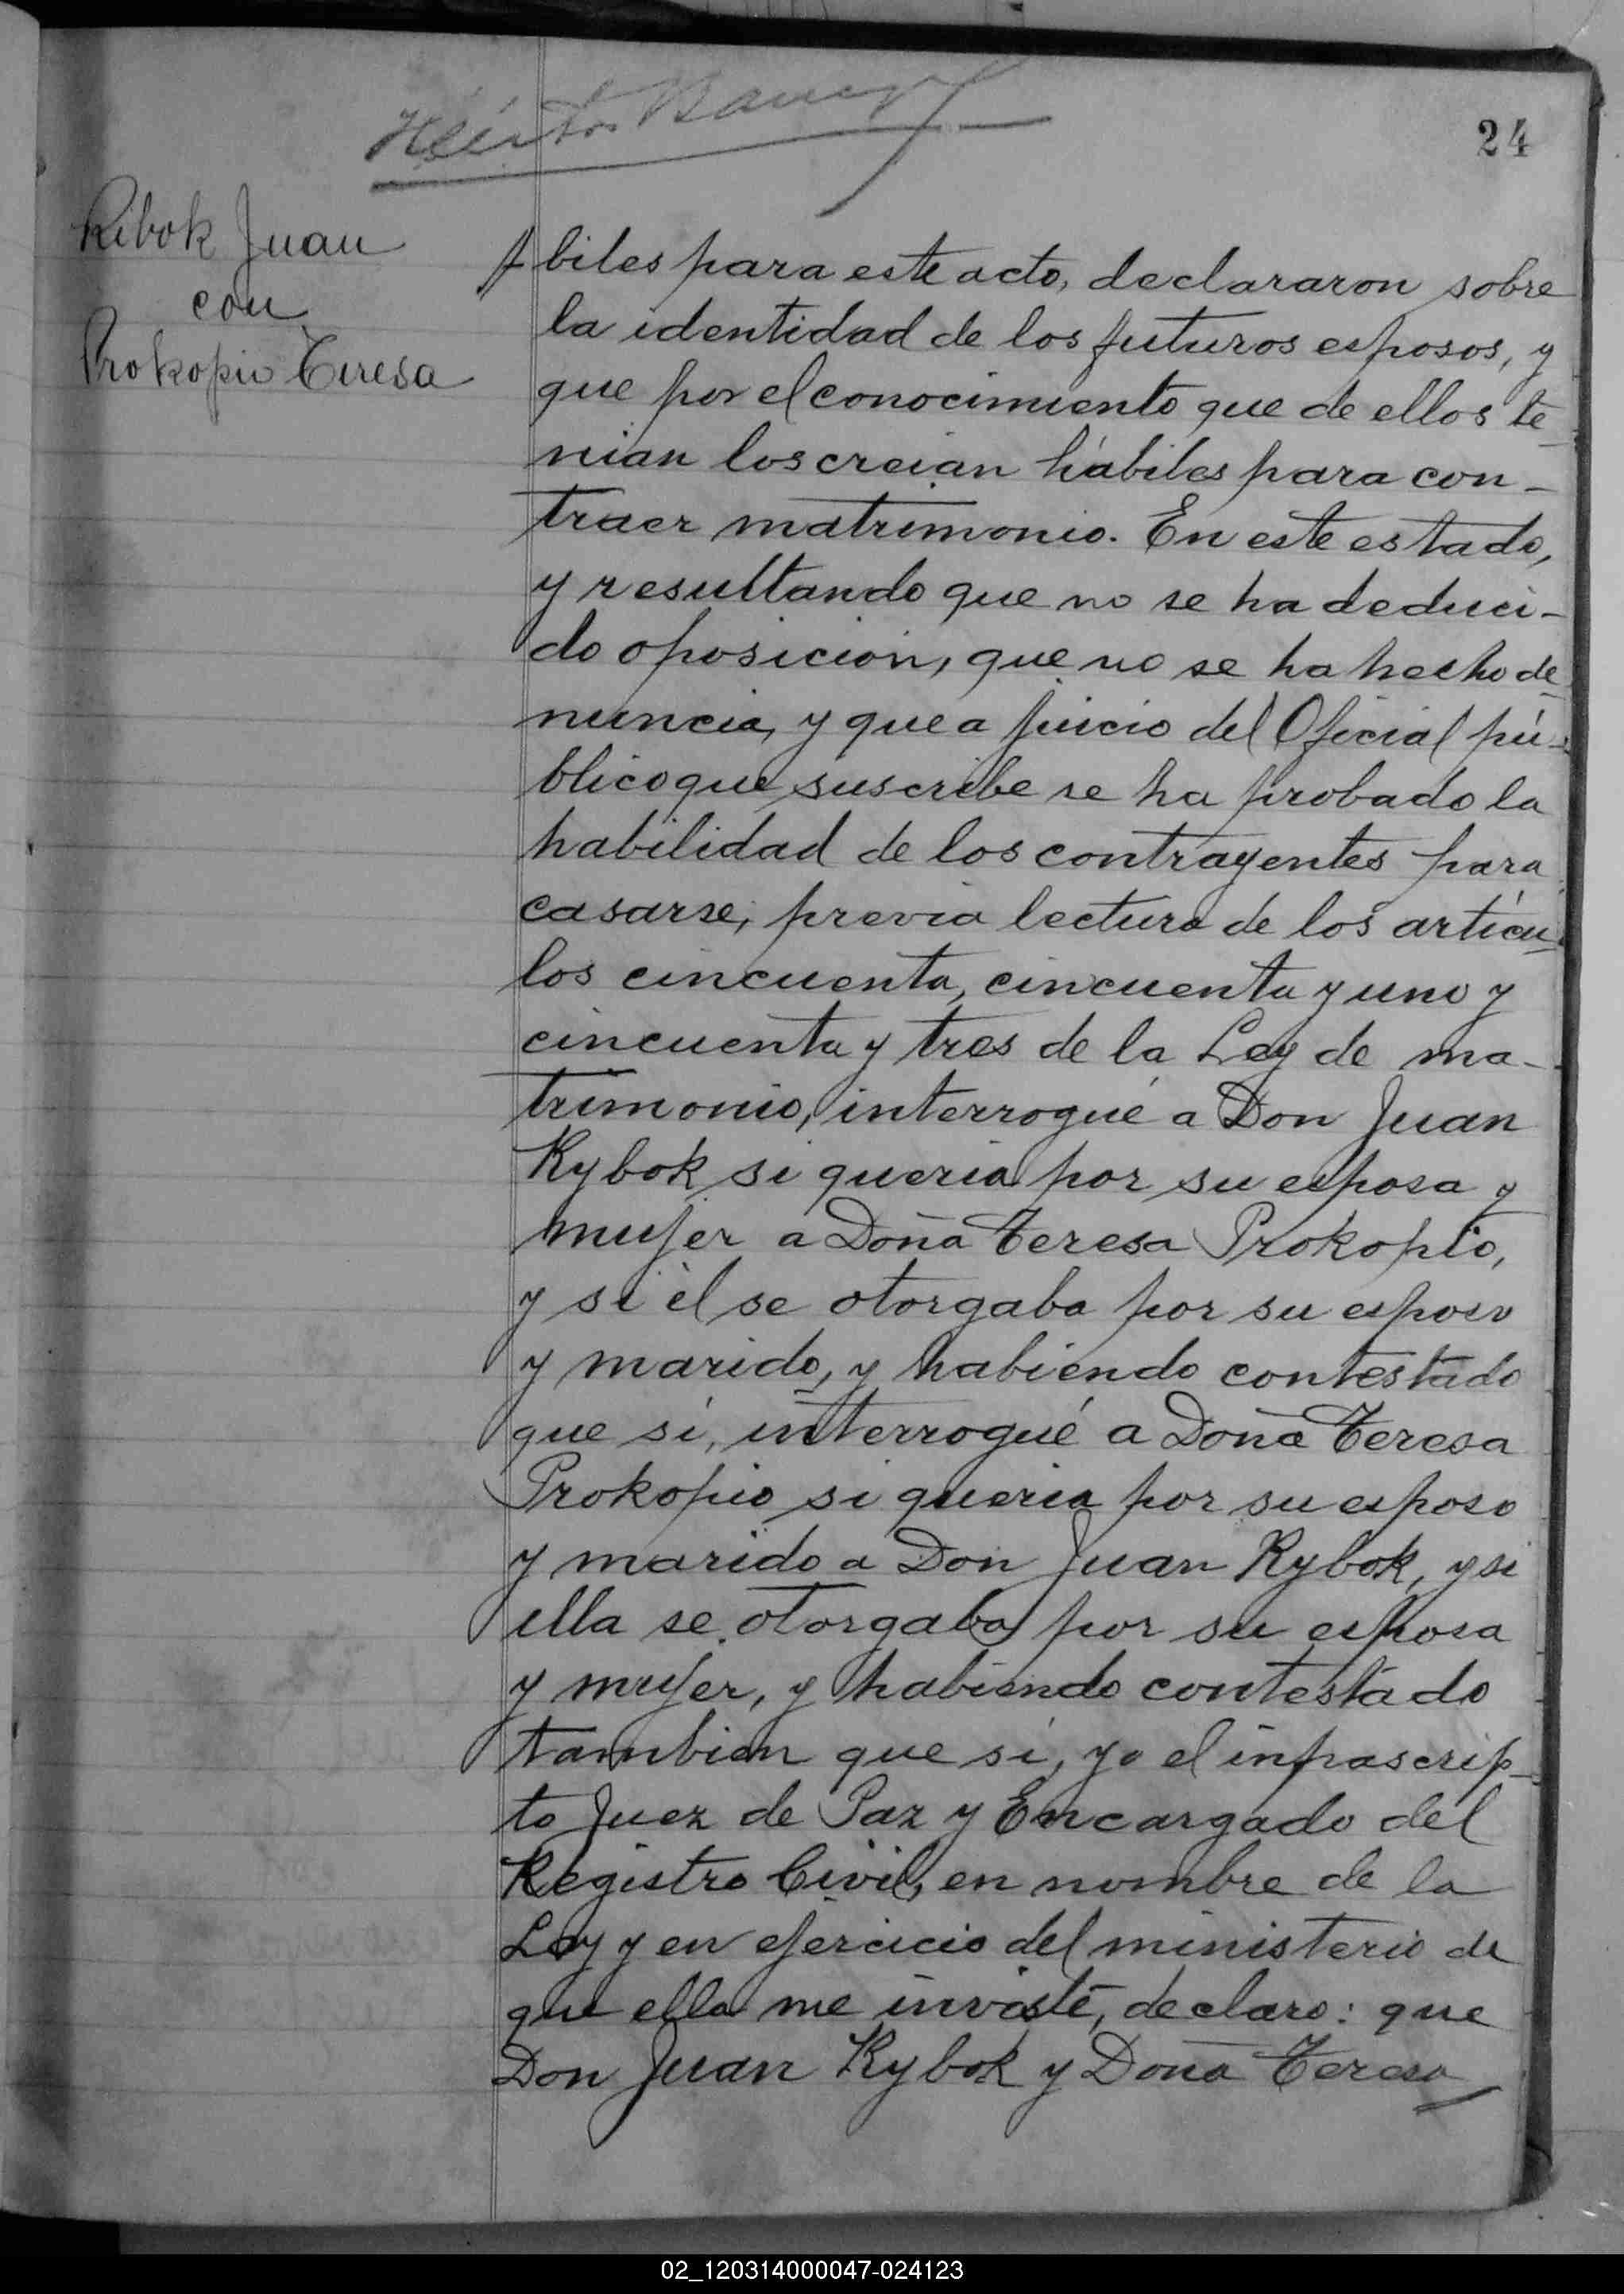 24
Ribok Juan
con
Prokopio Teresa
biles para este acto, declararon sobre
la identidad de los futuros esposos, y
que por el conocimiento que de ellos te-
nian los creian hábiles para con-
traer matrimonio. En este estado,
y resultando que no se ha deduci-
do oposicion, que no se ha hecho de-
nuncia, y que a juicio del Oficial pú-
blico que suscribe se ha probado la
habilidad de los contrayentes para
casarse, previa lectura de los articu-
los cincuenta, cincuenta y uno y
cincuenta y tres de la Ley de ma-
trimonio, interrogué a Don Juan
Rybok si queria por su esposa y
mujer a Doña Teresa Prokopio,
y si él se otorgaba por su esposo
y marido, y habiendo contestado
que si, interrogué a Doña Teresa
Prokopio si queria por su esposo
y marido a Don Juan Rybok, y si
ella se otorgaba por su esposa
y mujer, y habiendo contestado
tambien que si, yo el infrascrip-
to Juez de Paz y Encargado del
Registro Civil, en nombre de la
Ley y en ejercicio del ministerio de
que ella me inviste, declaro: que
Don Juan Rybok y Doña Teresa
02_120314000047-024123